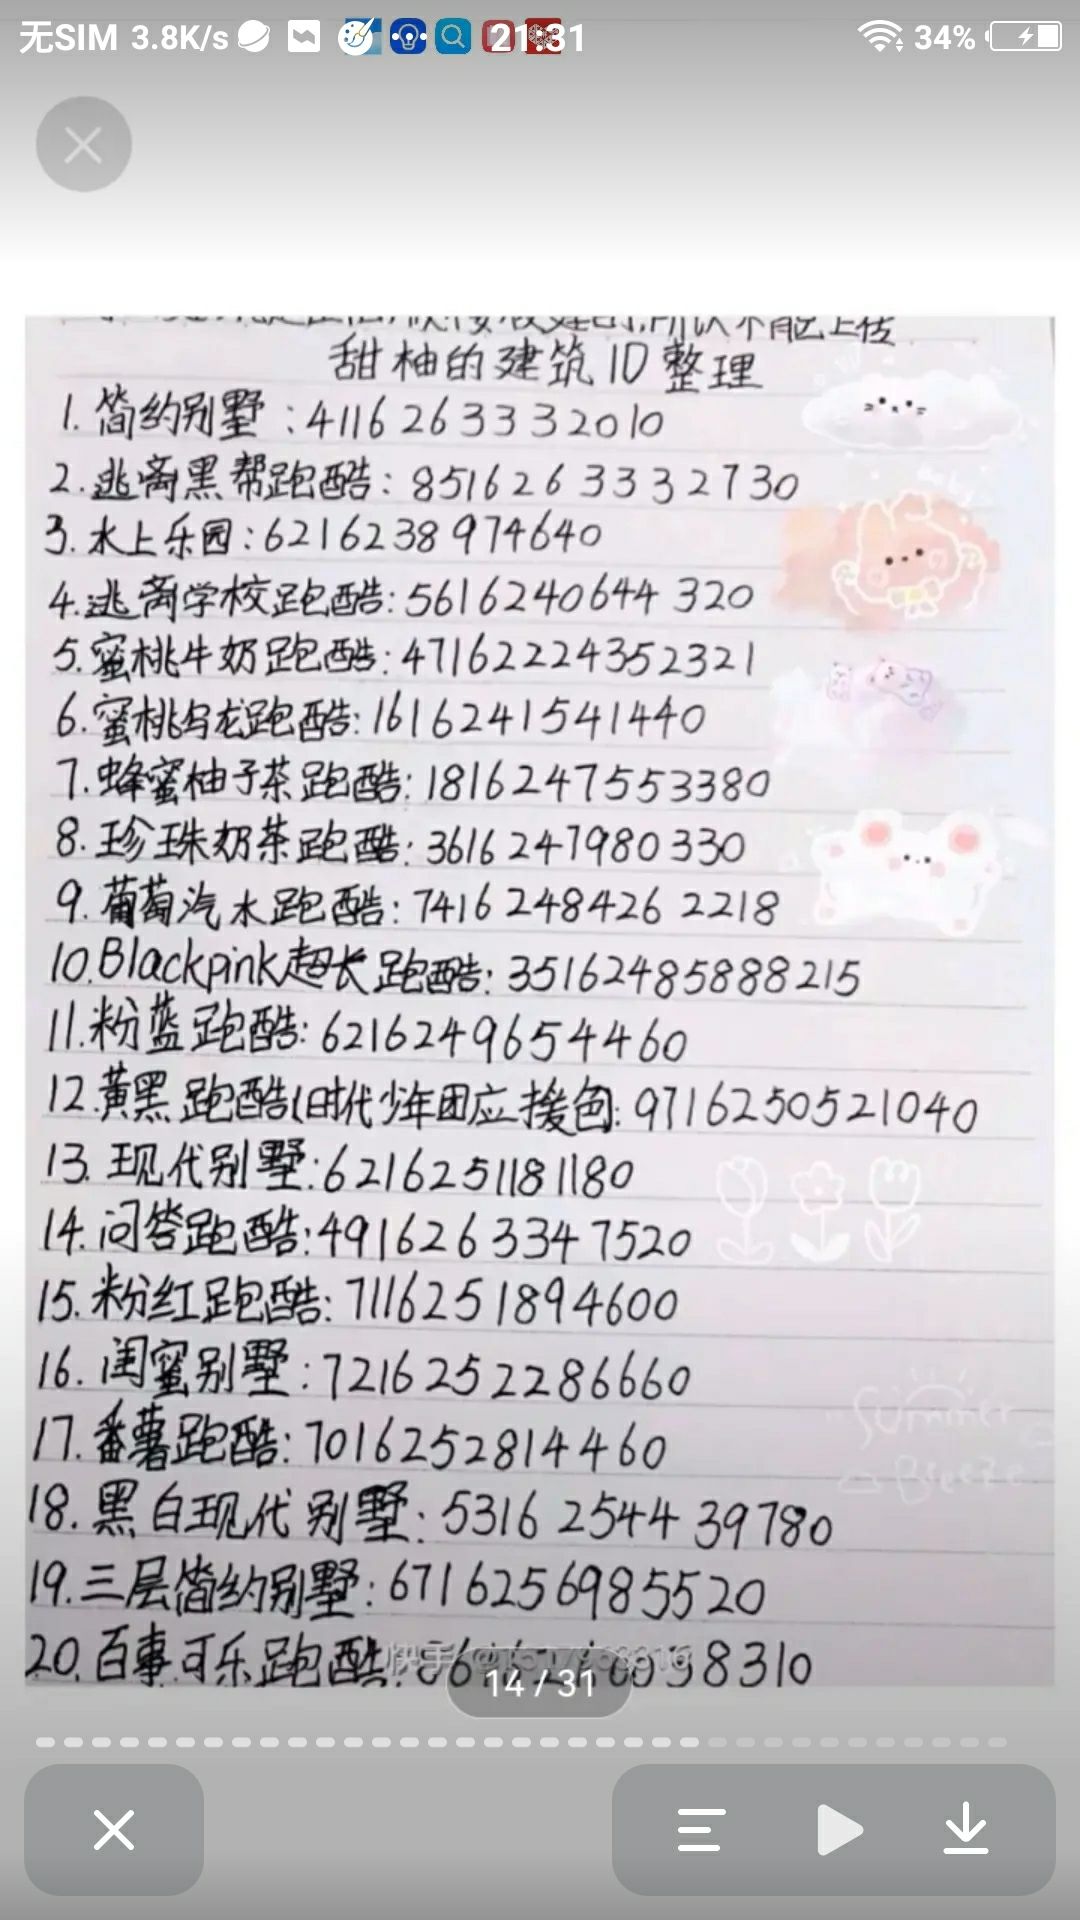 无SIM 3.8K/s 21:31 34%
甜柚的建筑ID整理
1. 简约别墅:4116263332010
2. 逃离黑帮跑酷:8516263332730
3. 水上乐园:6216238974640
4. 逃离学校跑酷:5616240644320
5. 蜜桃牛奶跑酷:47162224352321
6. 蜜桃乌龙跑酷:1616241541440
7. 蜂蜜柚子茶跑酷:1816247553380
8. 珍珠奶茶跑酷:3616247980330
9. 葡萄汽水跑酷:74162484262218
10. Blackpink超长跑酷:35162485888215
11. 粉蓝跑酷:6216249654460
12. 黄黑跑酷(时代少年团应援色:9716250521040
13. 现代别墅:6216251181180
14. 问答跑酷:4916263347520
15. 粉红跑酷:7116251894600
16. 闺蜜别墅:7216252286660
17. 番薯跑酷:7016252814460
18. 黑白现代别墅:5316254439780
19. 三层简约别墅:6716256985520
20. 百事可乐跑酷:
快手
14/31
Summer
Breeze